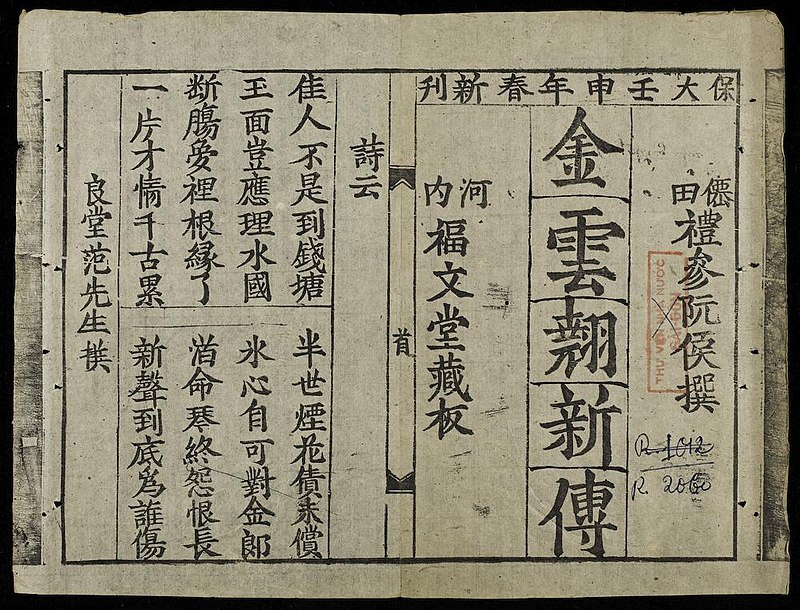 保大壬申年春新刊
僊田禮參阮侯撰
金雲翹新傳
河內福文堂藏板
首
詩云
佳人不是到錢塘 半世煙花債未償
玉面豈應埋水國 氷心自可對金郎
断膓夢裡根緣了 泊命琴終怨恨長
一片才情千古累 新聲到底為誰傷
良堂范先生撰
R. 1012
R. 2060